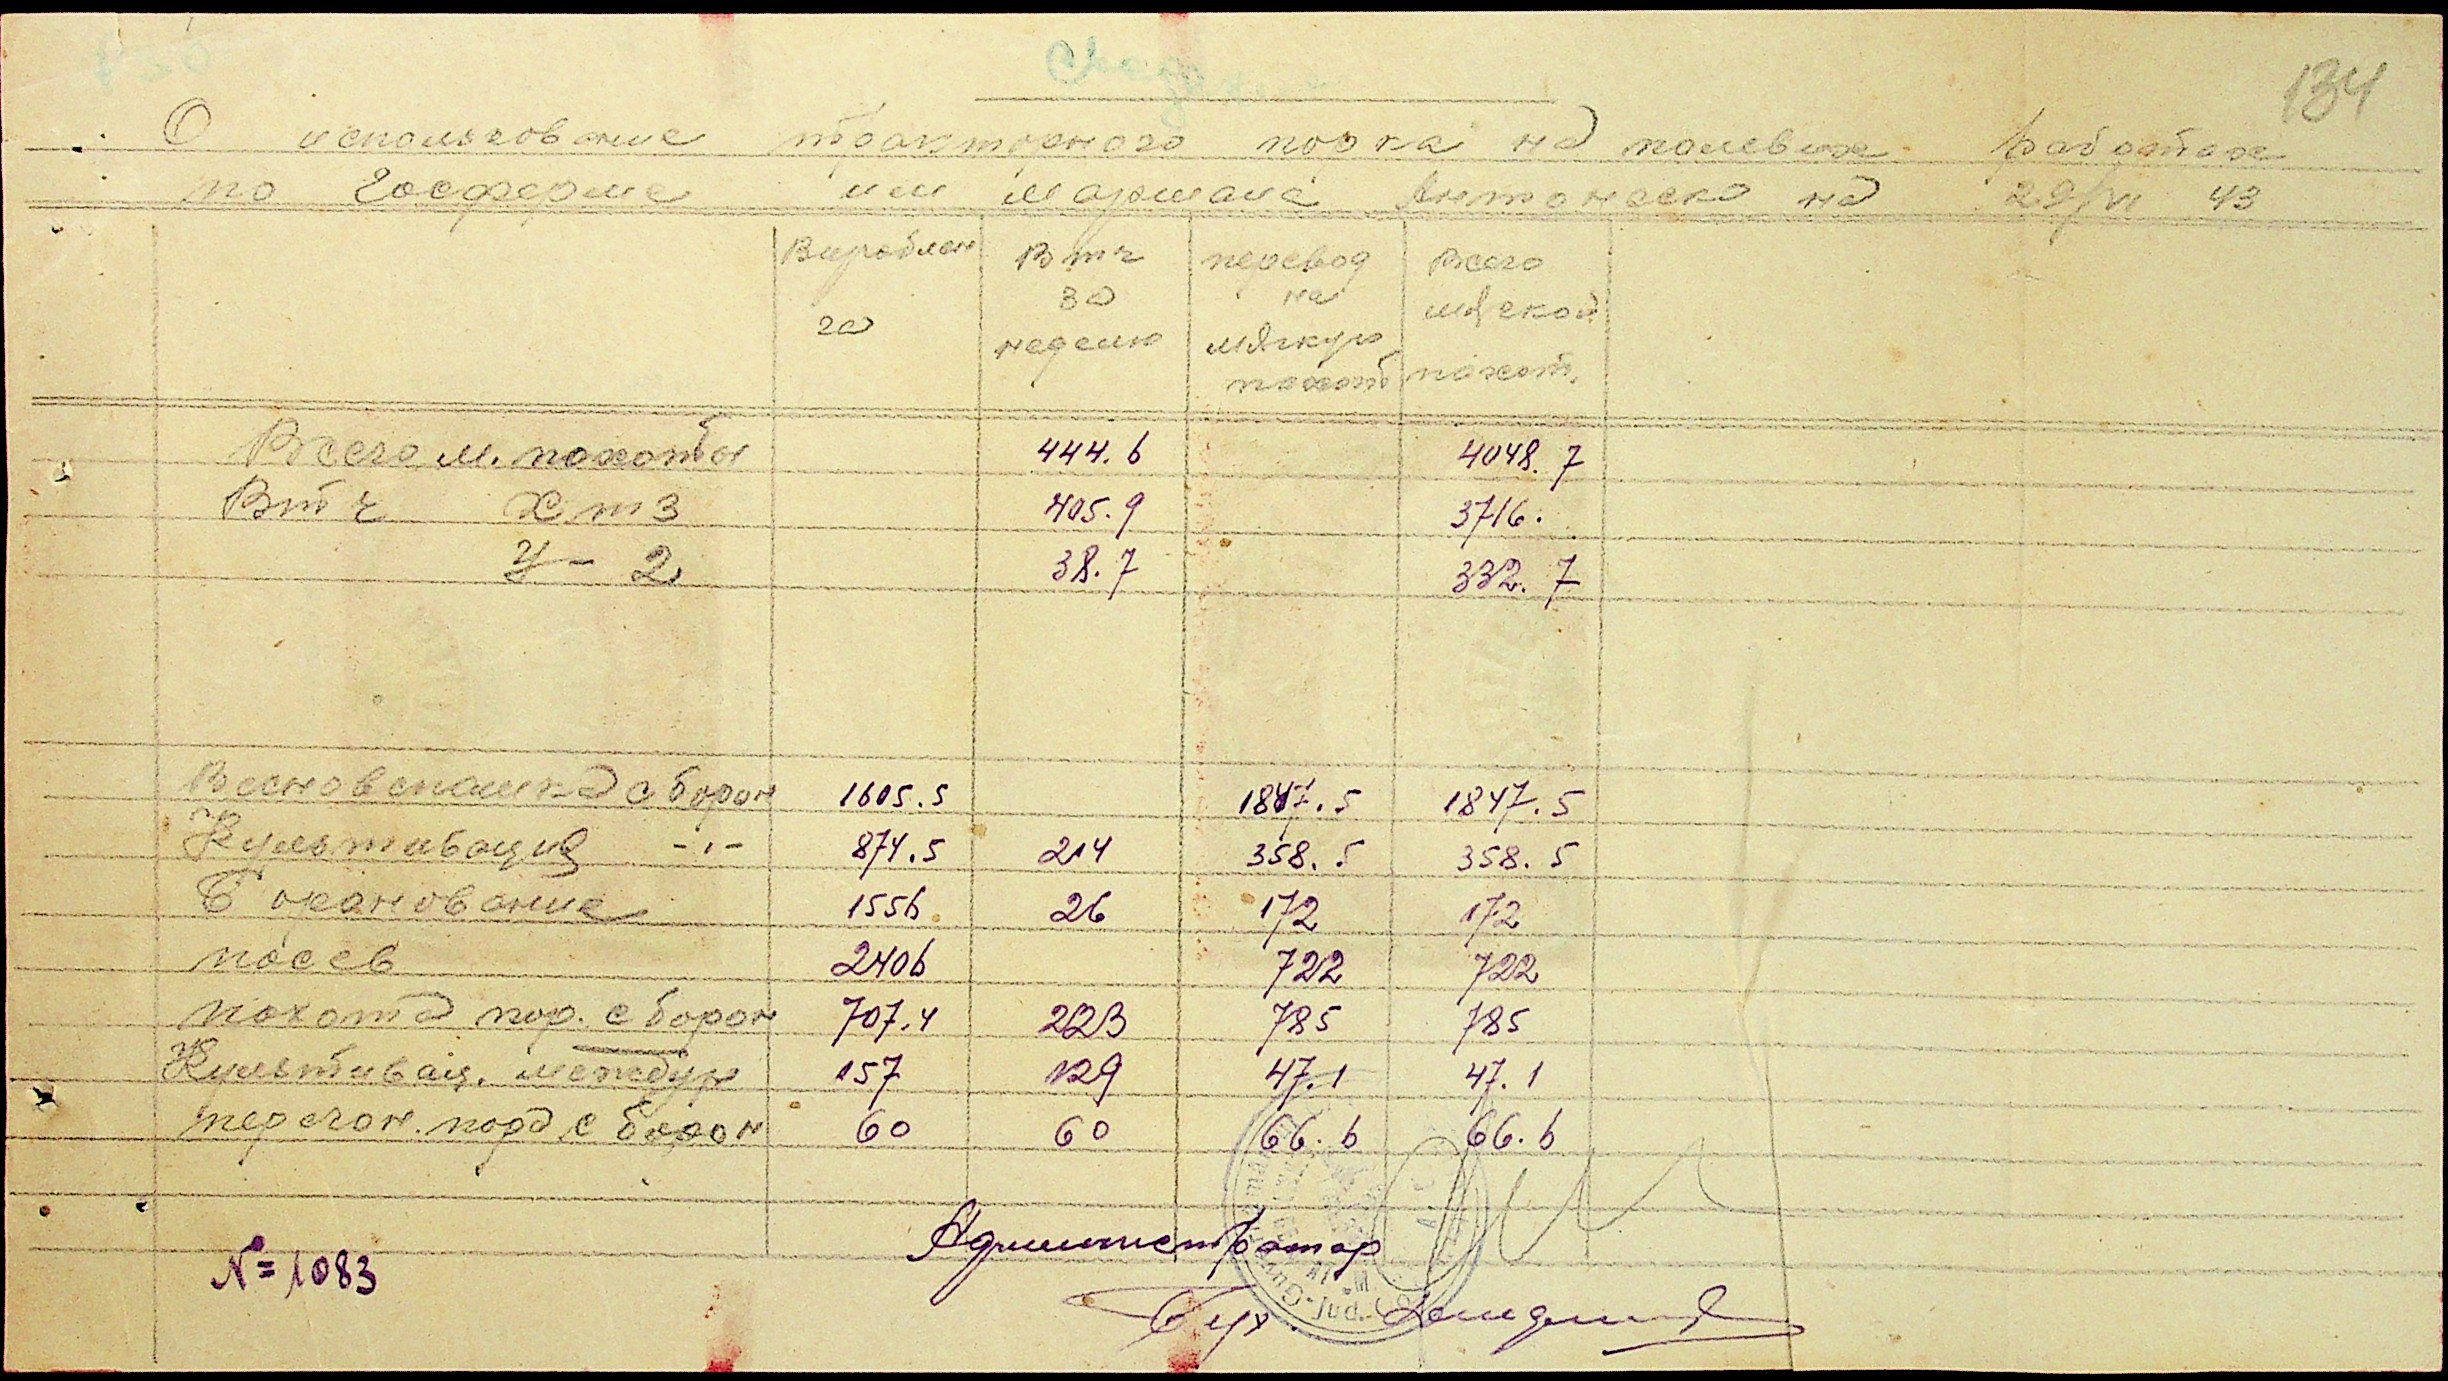 134
О использование тракторного парка на полевых работах
по Госферме им Маршала Антонеско на 29/VI 43
Вироблен га
В т ч за неделю
перевод на мягкую пахот
Всего мягкой пахот.
Всего м. пахоты 444.6 4048.7
В т ч ХТЗ 405.9 3716.
У-2 38.7 332.7
Весновспашка с борон 1605.5 1847.5 1847.5
Культивация -"- 874.5 214 358.5 358.5
Боронование 1556 26 172 172
посев 2406 722 722
пахота пар. с борон 707.4 223 785 785
Культивац. междур 157 129 47.1 47.1
перечон. пара с борон 60 60 66.6 66.6
Администратор
№=1083
Бух.